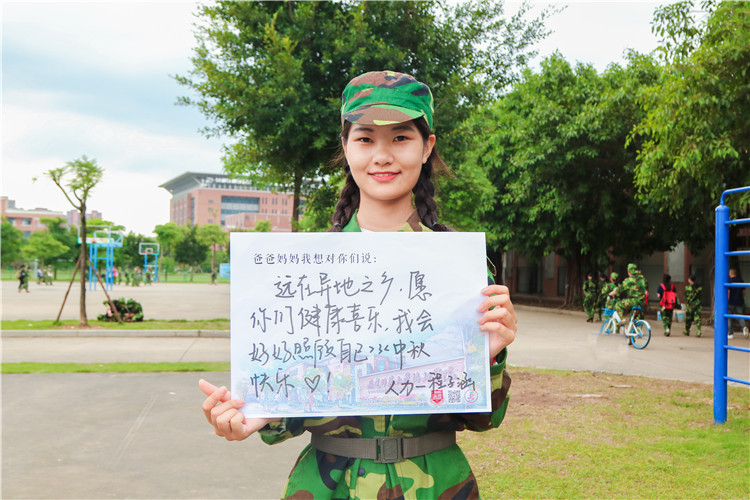 爸爸妈妈我想对你们说：
远在异地之乡，愿
你们健康喜乐，我会
好好照顾自己
中秋
快乐♡！
人力一 程子涵